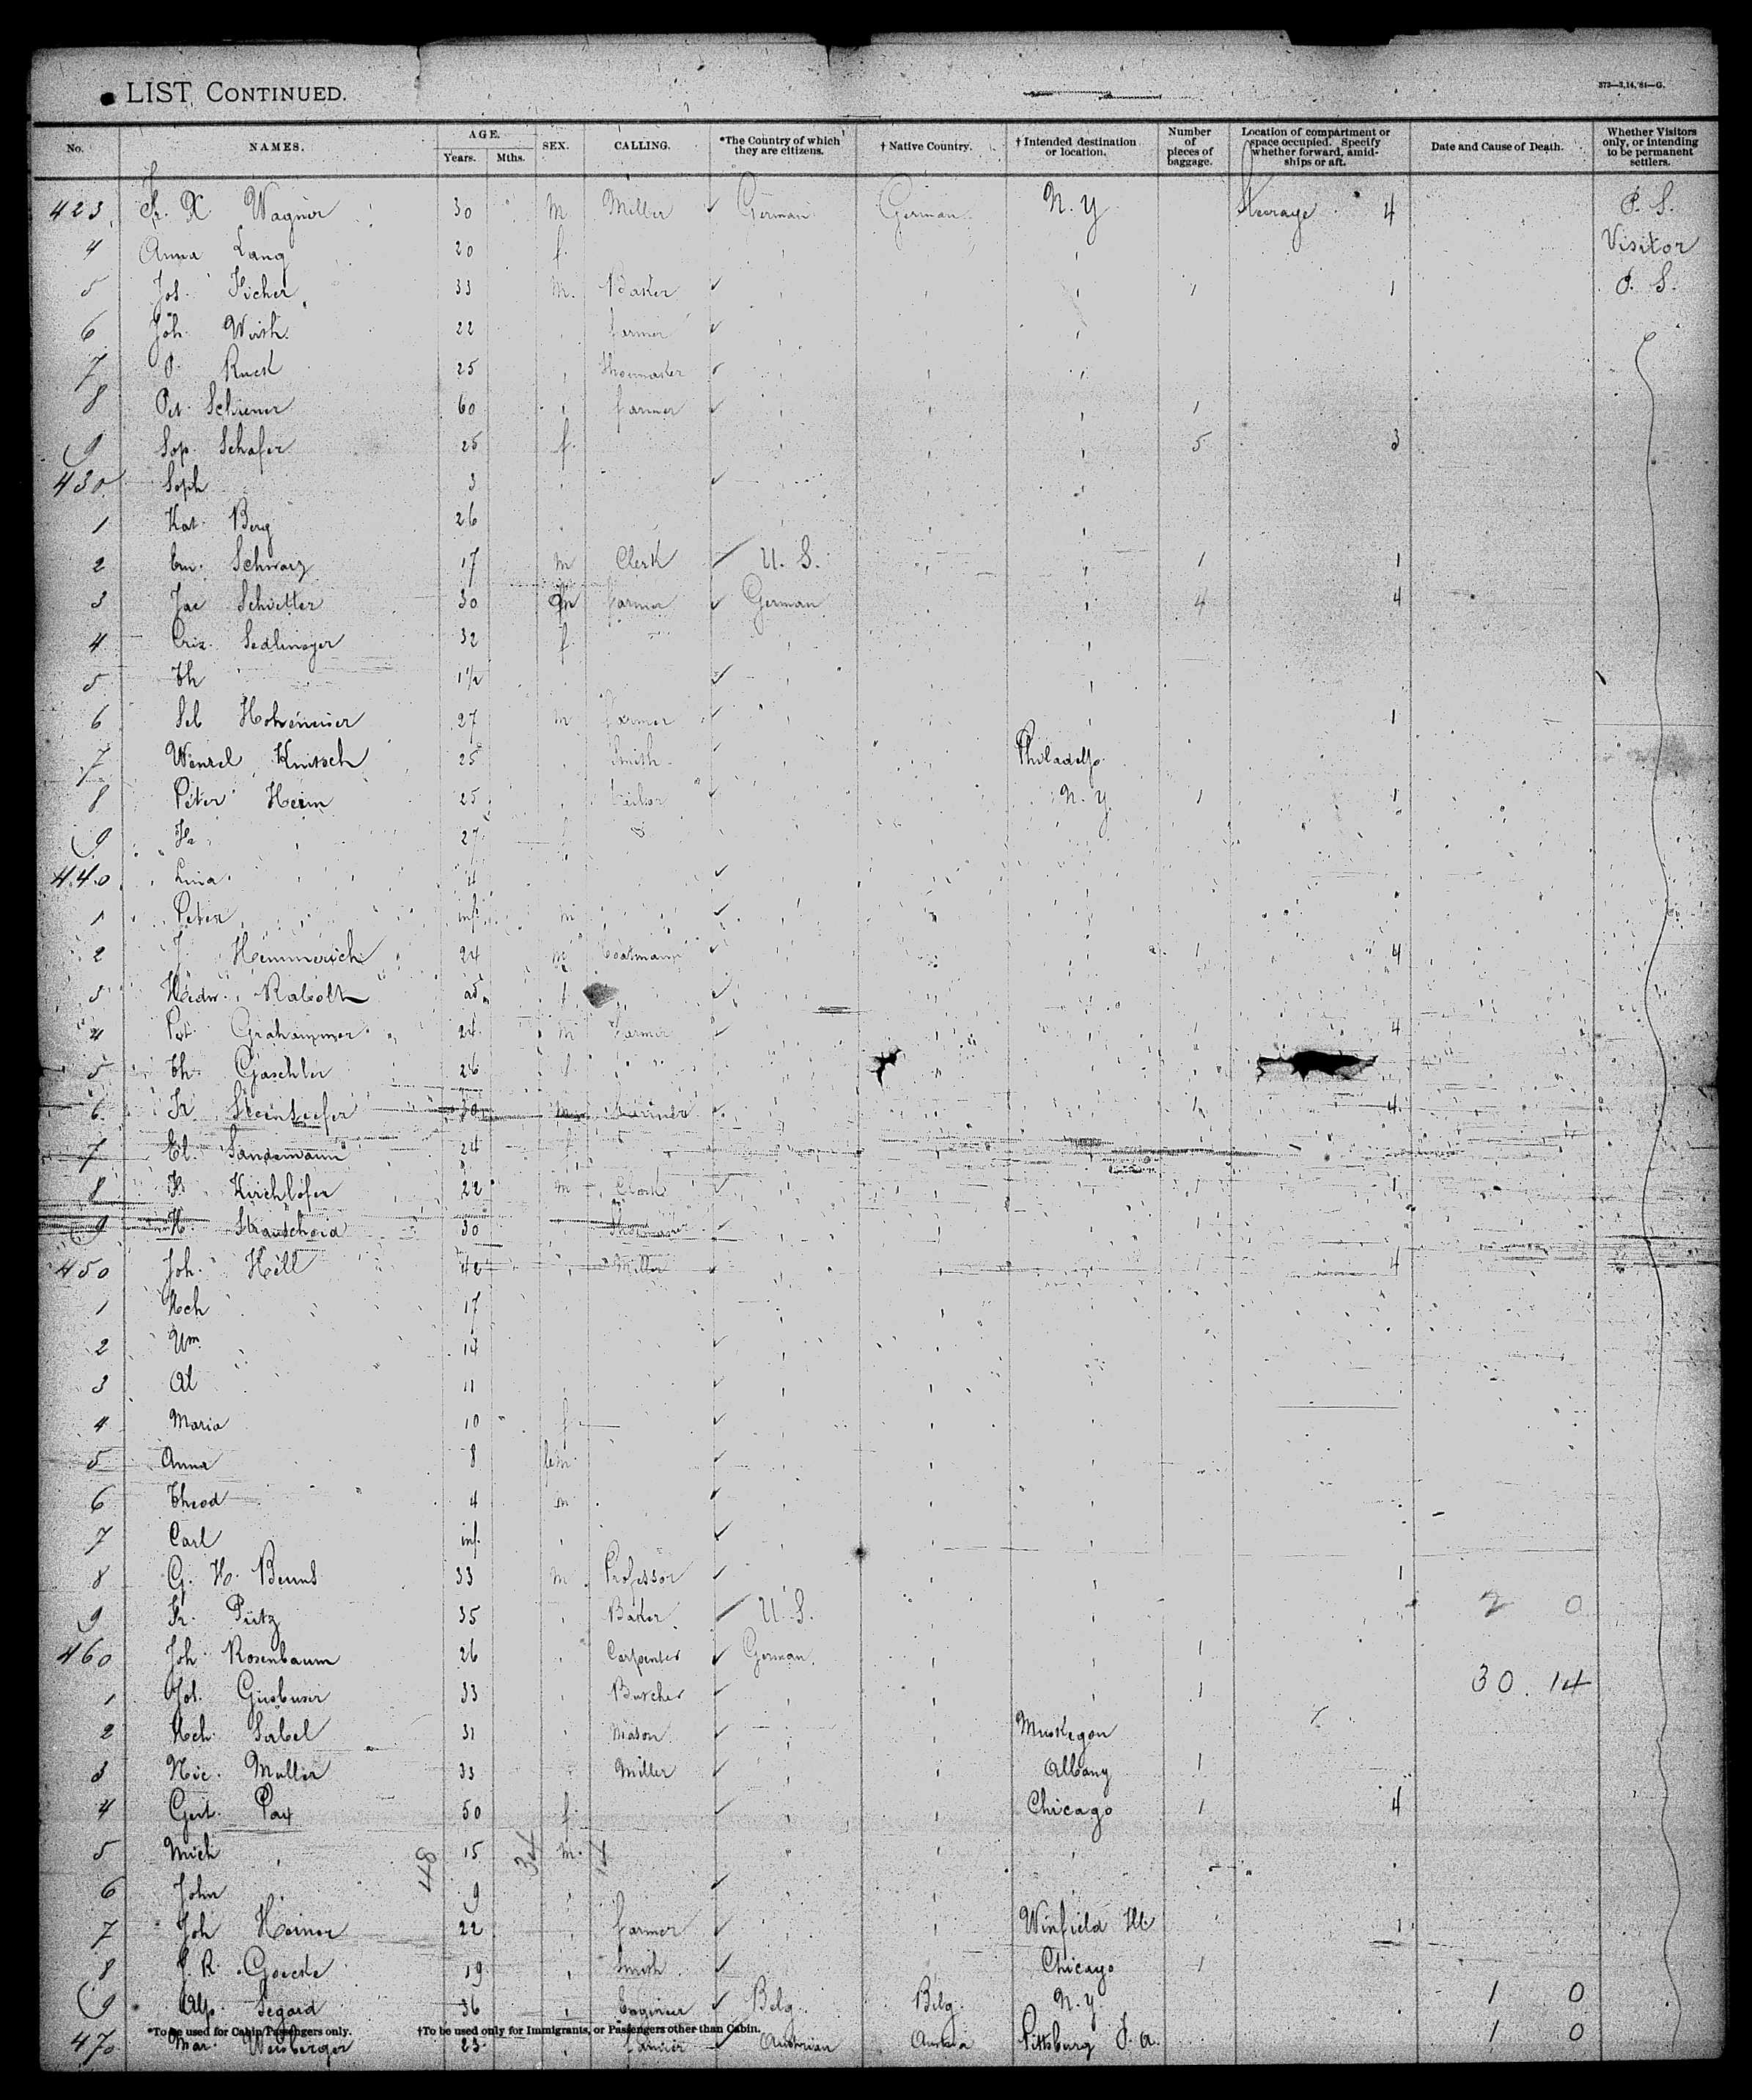 LIST CONTINUED.
373—3,14,'81—G.
No. NAMES. AGE. Years. Mths. SEX. CALLING. *The Country of which they are citizens. † Native Country. † Intended destination or location. Number of pieces of baggage. Location of compartment or space occupied. Specify whether forward, amidships or aft. Date and Cause of Death. Whether Visitors only, or intending to be permanent settlers.
423 Fr. X Wagner 30 M Miller ✓ German German N. Y Steerage 4 P. S.
4 Anna Lang 20 f. Visitor
5 Jos. 33 m. Baker ✓ 1 1 P. S.
6 Joh. Wirth 22 farmer ✓
7 P. Ruck 25 Shoemaker ✓
8 Pet. Schiener 60 farmer ✓ 1
9 Sop. Schafer 25 f. 5 3
430 Soph 3 ✓
1 Kat. Berg 26
2 Em. Schwarz 17 m Clerk ✓ U. S. 1 1
3 Jac 30 m farmer ✓ German 4 4
4 Sedlmayer 32 f.
5 Th 1½ ✓
6 Seb 27 m farmer ✓ 1
7 Wenzel Knitsch 25 Smith ✓ Philadelp.
8 Peter Heim 25 ✓ N. Y. 1 1
9 Fr 27 f
440 Lina 4 ✓
1 Peter inf. m ✓
2 J Hemmerich 24 m ✓ 1 4
3 Hedw. Rabolt ad f ✓
4 Pet Grahammer 24 m Farmer ✓ 1 4
5 Th. Gaschler 26 f
6 Fr 30 m ✓ 1 4
7 El. Sandemann 24 f
8 Fr Kirchhofer 22 m Clerk ✓ 1 1
9 H. 30 Shoemaker ✓ 1
450 Joh. Hell 42 Miller ✓ 1 4
1 Hch 17
2 Wm 14
3 Al 11 ✓
4 Maria 10 f ✓
5 Anna 8 ✓
6 Theod 4 m ✓
7 Carl inf. ✓
8 G. H. 33 m. Professor ✓ 1
9 Fr. Pütz 35 Baker ✓ U. S. 2 0
460 Joh. Rosenbaum 26 Carpenter ✓ German 1
30. 14
1 Jos. 33 Butcher ✓ 1
2 Hch. Sabel 31 Mason ✓ Muskegon
3 Nic. Muller 33 Miller ✓ Albany 1
4 Gert. Pax 50 f. ✓ Chicago 1 4
5 Mich 15 m.
48 34 14
6 John 9 ✓
7 Joh Heiner 22 farmer ✓ Winfield Ill. 1
8 Goecke 19 Smith ✓ Chicago 1
9 Alp. Segard 36 Engineer ✓ Belg. Belg. N. Y. 1 0
*To be used for Cabin Passengers only. †To be used only for Immigrants, or Passengers other than Cabin.
470 Mar. Weisberger 23 farmer ✓ Austrian Austria Pittsburg 1 0